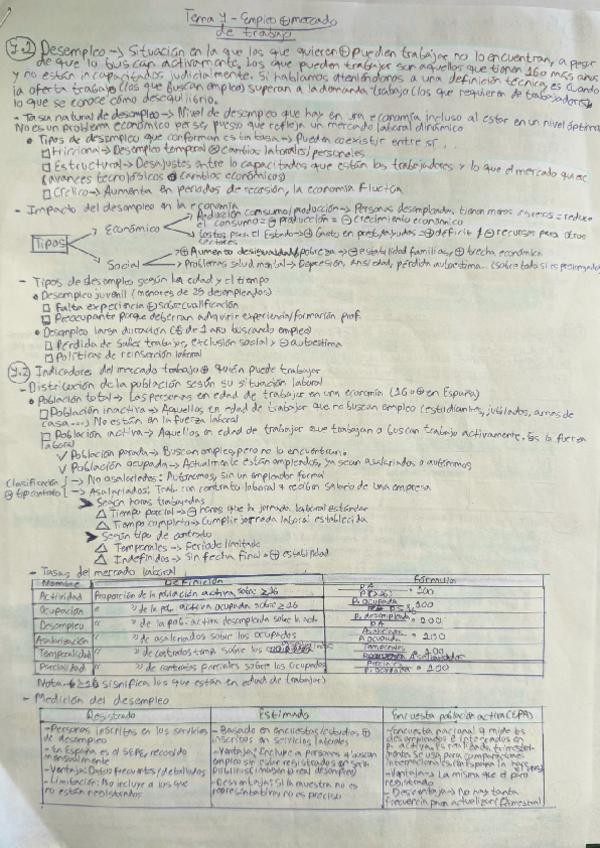 Tema 7 - Empleo ⊕ mercado
de trabajo
7.1 Desempleo -> Situación en la que los que quieren ⊕ pueden trabajar no lo encuentran, a pesar
de que lo buscan activamente. Los que pueden trabajar son aquellos que tienen 16 o más años
y no están incapacitados judicialmente. Si hablamos ateniéndonos a una definición técnica, es cuando
la oferta trabajo (los que buscan empleo) superan a la demanda trabajo (los que requieren de trabajadores)
lo que se conoce como desequilibrio.
- Tasa natural de desempleo -> Nivel de desempleo que hay en una economía incluso al estar en un nivel óptimo
No es un problema económico per se, puesto que refleja un mercado laboral dinámico
• Tipos de desempleo que conforman esta tasa -> Pueden coexistir entre sí...
□ Friccional -> Desempleo temporal ⊕ cambios laborales/personales
□ Estructural -> Desajustes entre lo capacitados que están los trabajadores y lo que el mercado quiere
(avances tecnológicos cambios económicos)
□ Cíclico -> Aumenta en periodos de recesión, la economía fluctúa
- Impacto del desempleo en la economía
Reducción consumo/producción -> Personas desempleadas tienen menos ingresos = reduce
el consumo = ⊖ producción = ⊖ crecimiento económico
Económico
Costos para el Estado -> ⊕ Gasto en prest./ayudas = ⊕ déficit / ⊖ recursos para otros
sectores
Tipos
⊕ Aumento desigualdad/pobreza -> ⊖ estabilidad familias, ⊕ brecha económica
Social -> Problemas salud mental -> Depresión, ansiedad, pérdida autoestima... (sobre todo si es prolongado)
- Tipos de desempleo según la edad y el tiempo
• Desempleo juvenil (menores de 25 desempleados)
□ Falta experiencia ⊕ sobrecualificación
□ Preocupante porque deberían adquirir experiencia/formación prof.
• Desempleo larga duración (⊕ de 1 año buscando empleo)
□ Pérdida de saber trabajar, exclusión social y ⊖ autoestima
□ Políticas de reinserción laboral
7.2 Indicadores del mercado trabajo ⊕ quién puede trabajar
- Distribución de la población según su situación laboral
• Población total -> Las personas en edad de trabajar en una economía (16 o ⊕ en España)
□ Población inactiva -> Aquellos en edad de trabajar que no buscan empleo (estudiantes, jubilados, amas de
casa...) No están en la fuerza laboral
□ Población activa -> Aquellos en edad de trabajar que trabajan o buscan trabajo activamente. Es la fuerza
laboral
✓ Población parada -> Buscan empleo, pero no lo encuentran.
✓ Población ocupada -> Actualmente están empleados, ya sean asalariados o autónomos
Clasificación -> No asalariados: Autónomos, sin un empleador formal
⊕ tipo contrato -> Asalariados: Trab. con contrato laboral y reciben salario de una empresa
➤ Según horas trabajadas
△ Tiempo parcial -> ⊖ horas que la jornada laboral estándar
△ Tiempo completo -> Cumplir jornada laboral establecida
➤ Según tipo de contrato
△ Temporales -> Periodo limitado
△ Indefinidos -> Sin fecha final = ⊕ estabilidad
- Tasas del mercado laboral
Nombre Definición Fórmula
Actividad Proporción de la población activa sobre ≥16 · 100
Ocupación " " de la pob. activa ocupada sobre ≥16 P. ocupada · 100
Desempleo " " de la pob. activa desempleada sobre la act. P. desempleada / PA · 100
Asalarización " " de asalariados sobre los ocupados Asalariados / P. ocupada · 100
Temporalidad " " de contratos temp. sobre los Temporales · 100
Parcialidad " " de contratos parciales sobre los ocupados Parciales / P. ocupada · 100
Nota (≥16 significa los que están en edad de trabajar)
- Medición del desempleo
Registrado Estimado Encuesta población activa (EPA)
- Personas inscritas en los servicios
de desempleo
- En España es el SEPE, recogido
mensualmente
- Ventaja: Datos frecuentes/detallados
- Limitación: No incluye a los que
no están registrados
- Basado en encuestas/estudios ⊕
inscritos en servicios laborales
- Ventaja: Incluye a personas q buscan
empleo sin estar registrados en serv.
públicos (imagen ⊕ real desempleo)
- Desventaja: Si la muestra no es
representativa no es preciso
- Encuesta nacional q mide los
empleados e integrados en
p. activa. Es realizada trimestral
mente. Se usa para comparaciones
internacionales
- Ventaja -> La misma que el paro
registrado
- Desventaja -> No hay tanta
frecuencia para actualizar (trimestral)